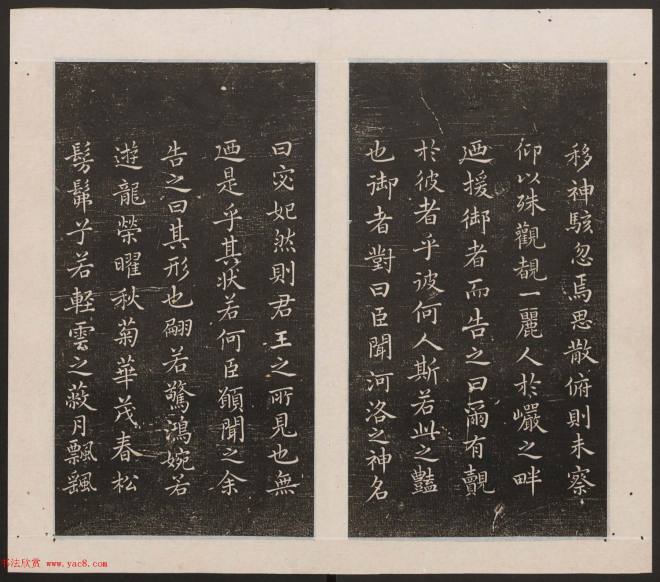 移神駭忽焉思散俯則未察
仰以殊觀覩一麗人於巖之畔
迺援御者而告之曰爾有覿
於彼者乎彼何人斯若此之豔
也御者對曰臣聞河洛之神名
曰宓妃然則君王之所見也無
迺是乎其狀若何臣願聞之余
告之曰其形也翩若驚鴻婉若
遊龍榮曜秋菊華茂春松
髣髴兮若輕雲之蔽月飄颻
书法欣赏 www.yac8.com